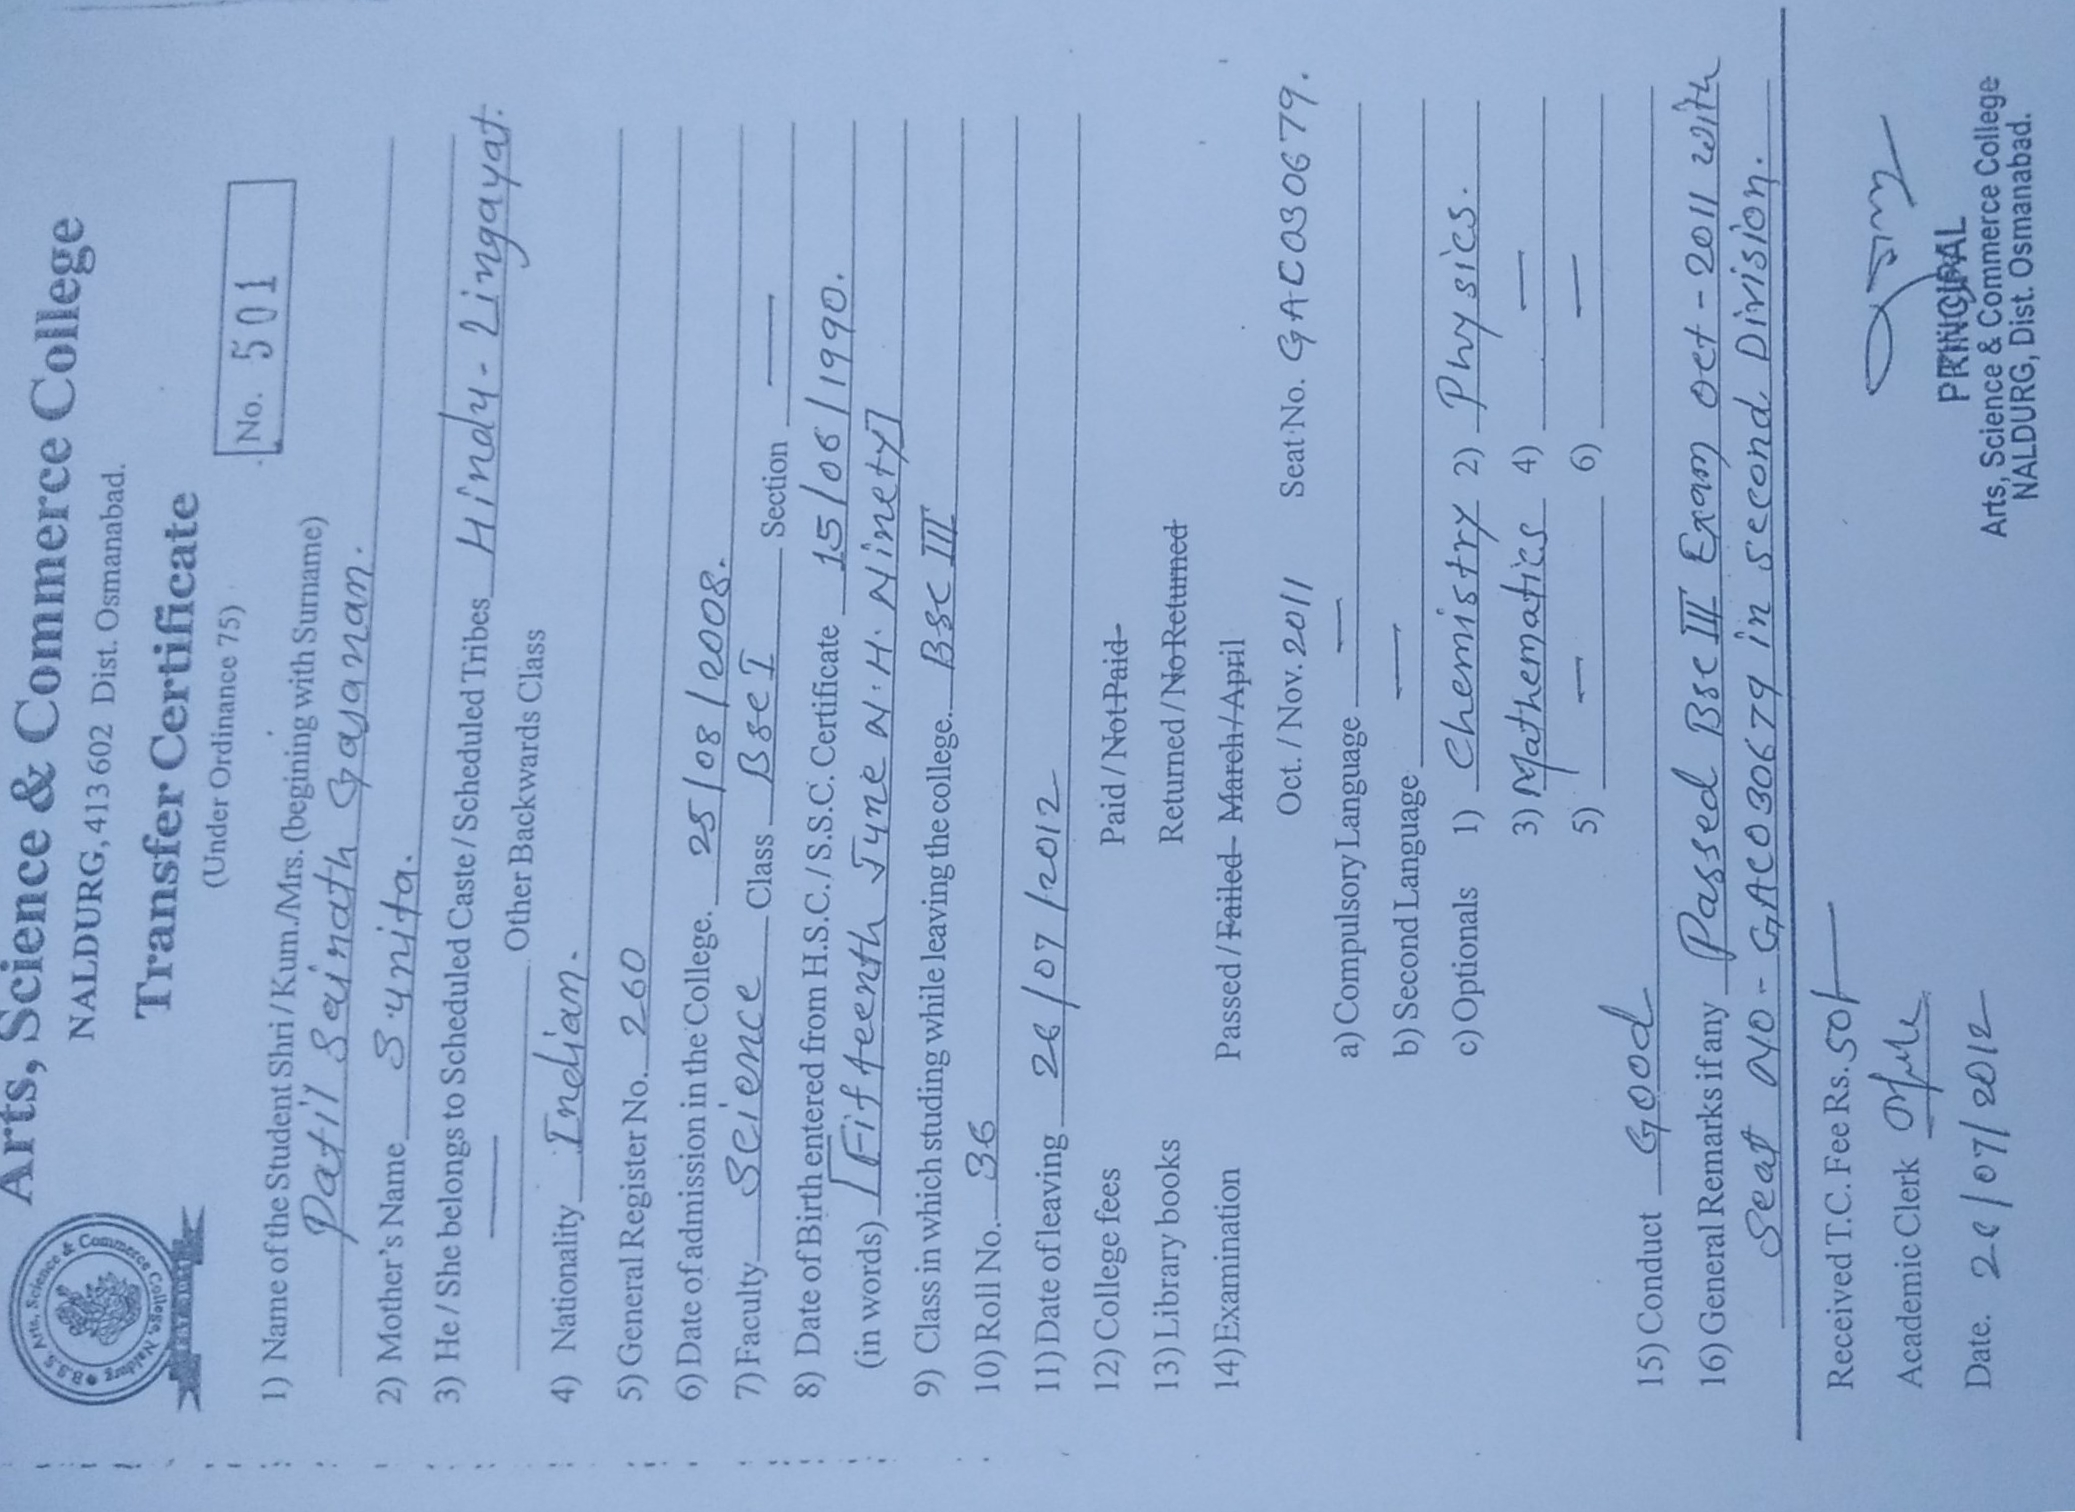 Arts, Science & Commerce College
NALDURG, 413 602 Dist. Osmanabad.
Transfer Certificate
(Under Ordinance 75)
No. 501
1) Name of the Student Shri / Kum./Mrs. (begining with Surname)
Patil Sainath Gajanan.
2) Mother's Name Sunita.
3) He / She belongs to Scheduled Caste / Scheduled Tribes Hindu - Lingayat.
— Other Backwards Class
4) Nationality Indian.
5) General Register No. 260
6) Date of admission in the College. 25/08/2008.
7) Faculty Science Class Bsc I Section —
8) Date of Birth entered from H.S.C. / S.S.C. Certificate 15/06/1990.
(in words) [Fifteenth June N.H. Ninety]
9) Class in which studing while leaving the college. Bsc III
10) Roll No. 36
11) Date of leaving 26/07/2012
12) College fees Paid / Not Paid
13) Library books Returned / No Returned
14) Examination Passed / Failed March / April
Oct. / Nov. 2011 Seat No. GAC030679.
a) Compulsory Language —
b) Second Language —
c) Optionals 1) Chemistry 2) Physics.
3) Mathematics 4) —
5) — 6) —
15) Conduct Good
16) General Remarks if any Passed Bsc III Exam Oct - 2011 with
Seat No - GAC030679 in second Division.
Received T.C. Fee Rs. 50/-
Academic Clerk
Date. 26/07/2012
PRINCIPAL
Arts, Science & Commerce College
NALDURG, Dist. Osmanabad.